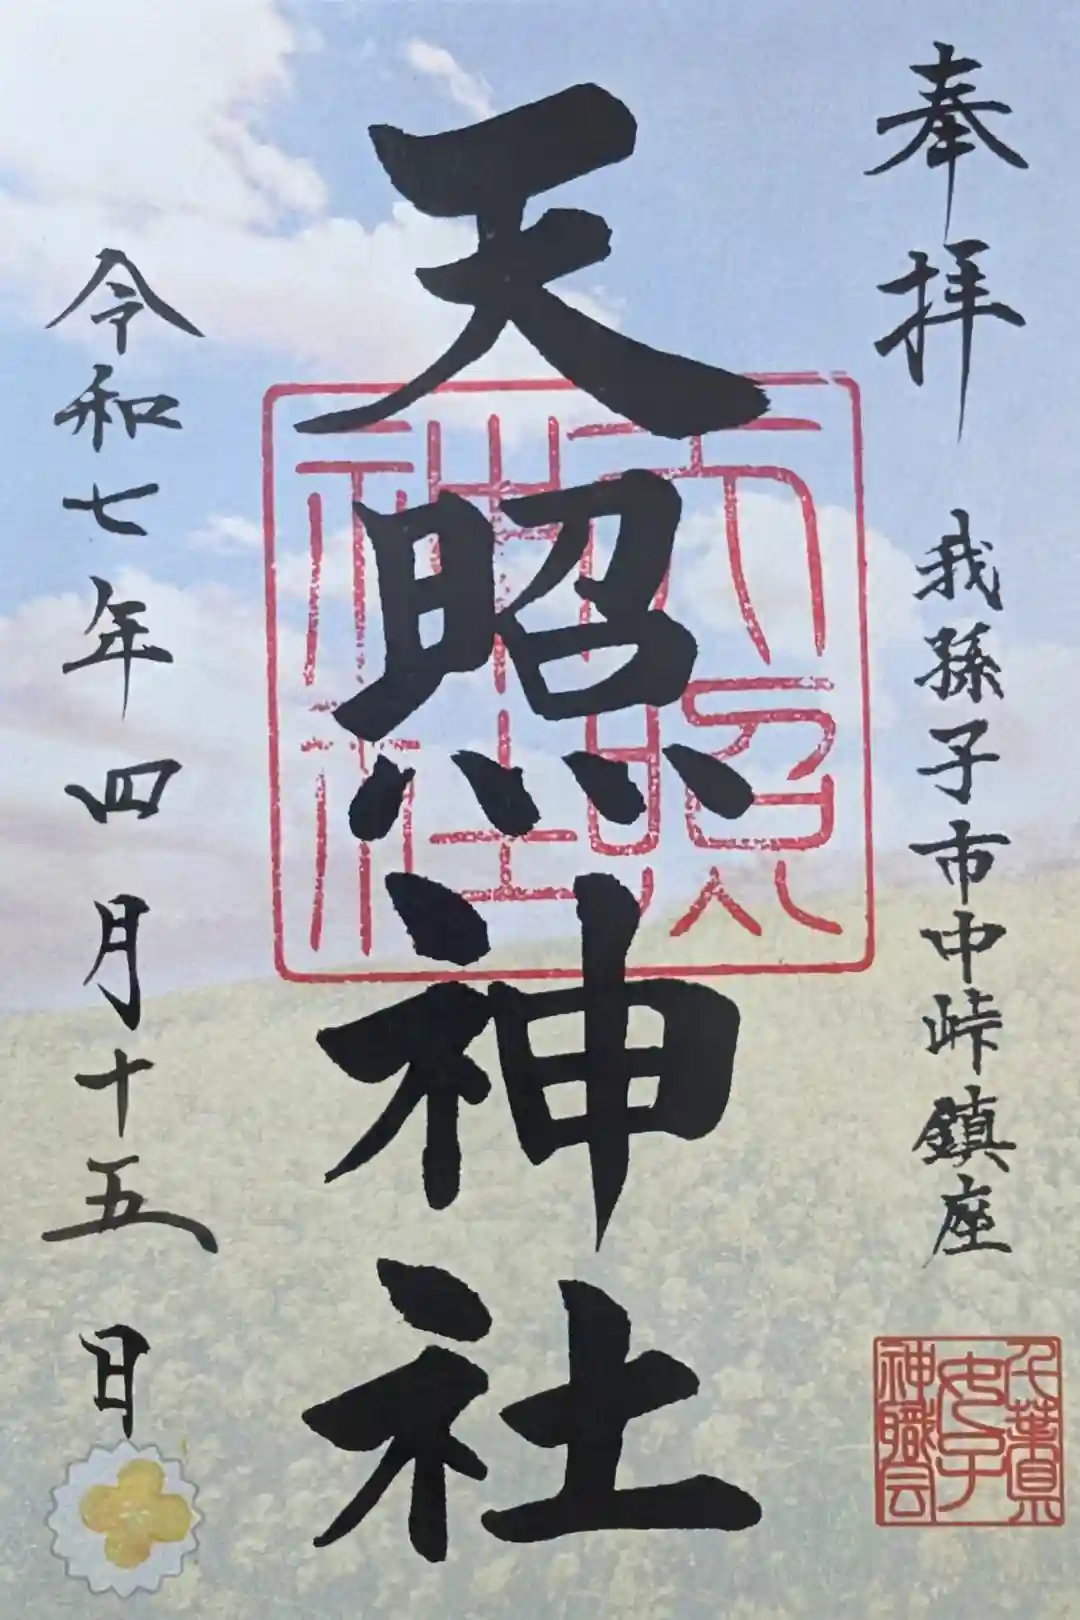 奉拝
我孫子市中峠鎮座
天照神社
天照
神社
令和七年四月十五日
千葉県
女子
神職会